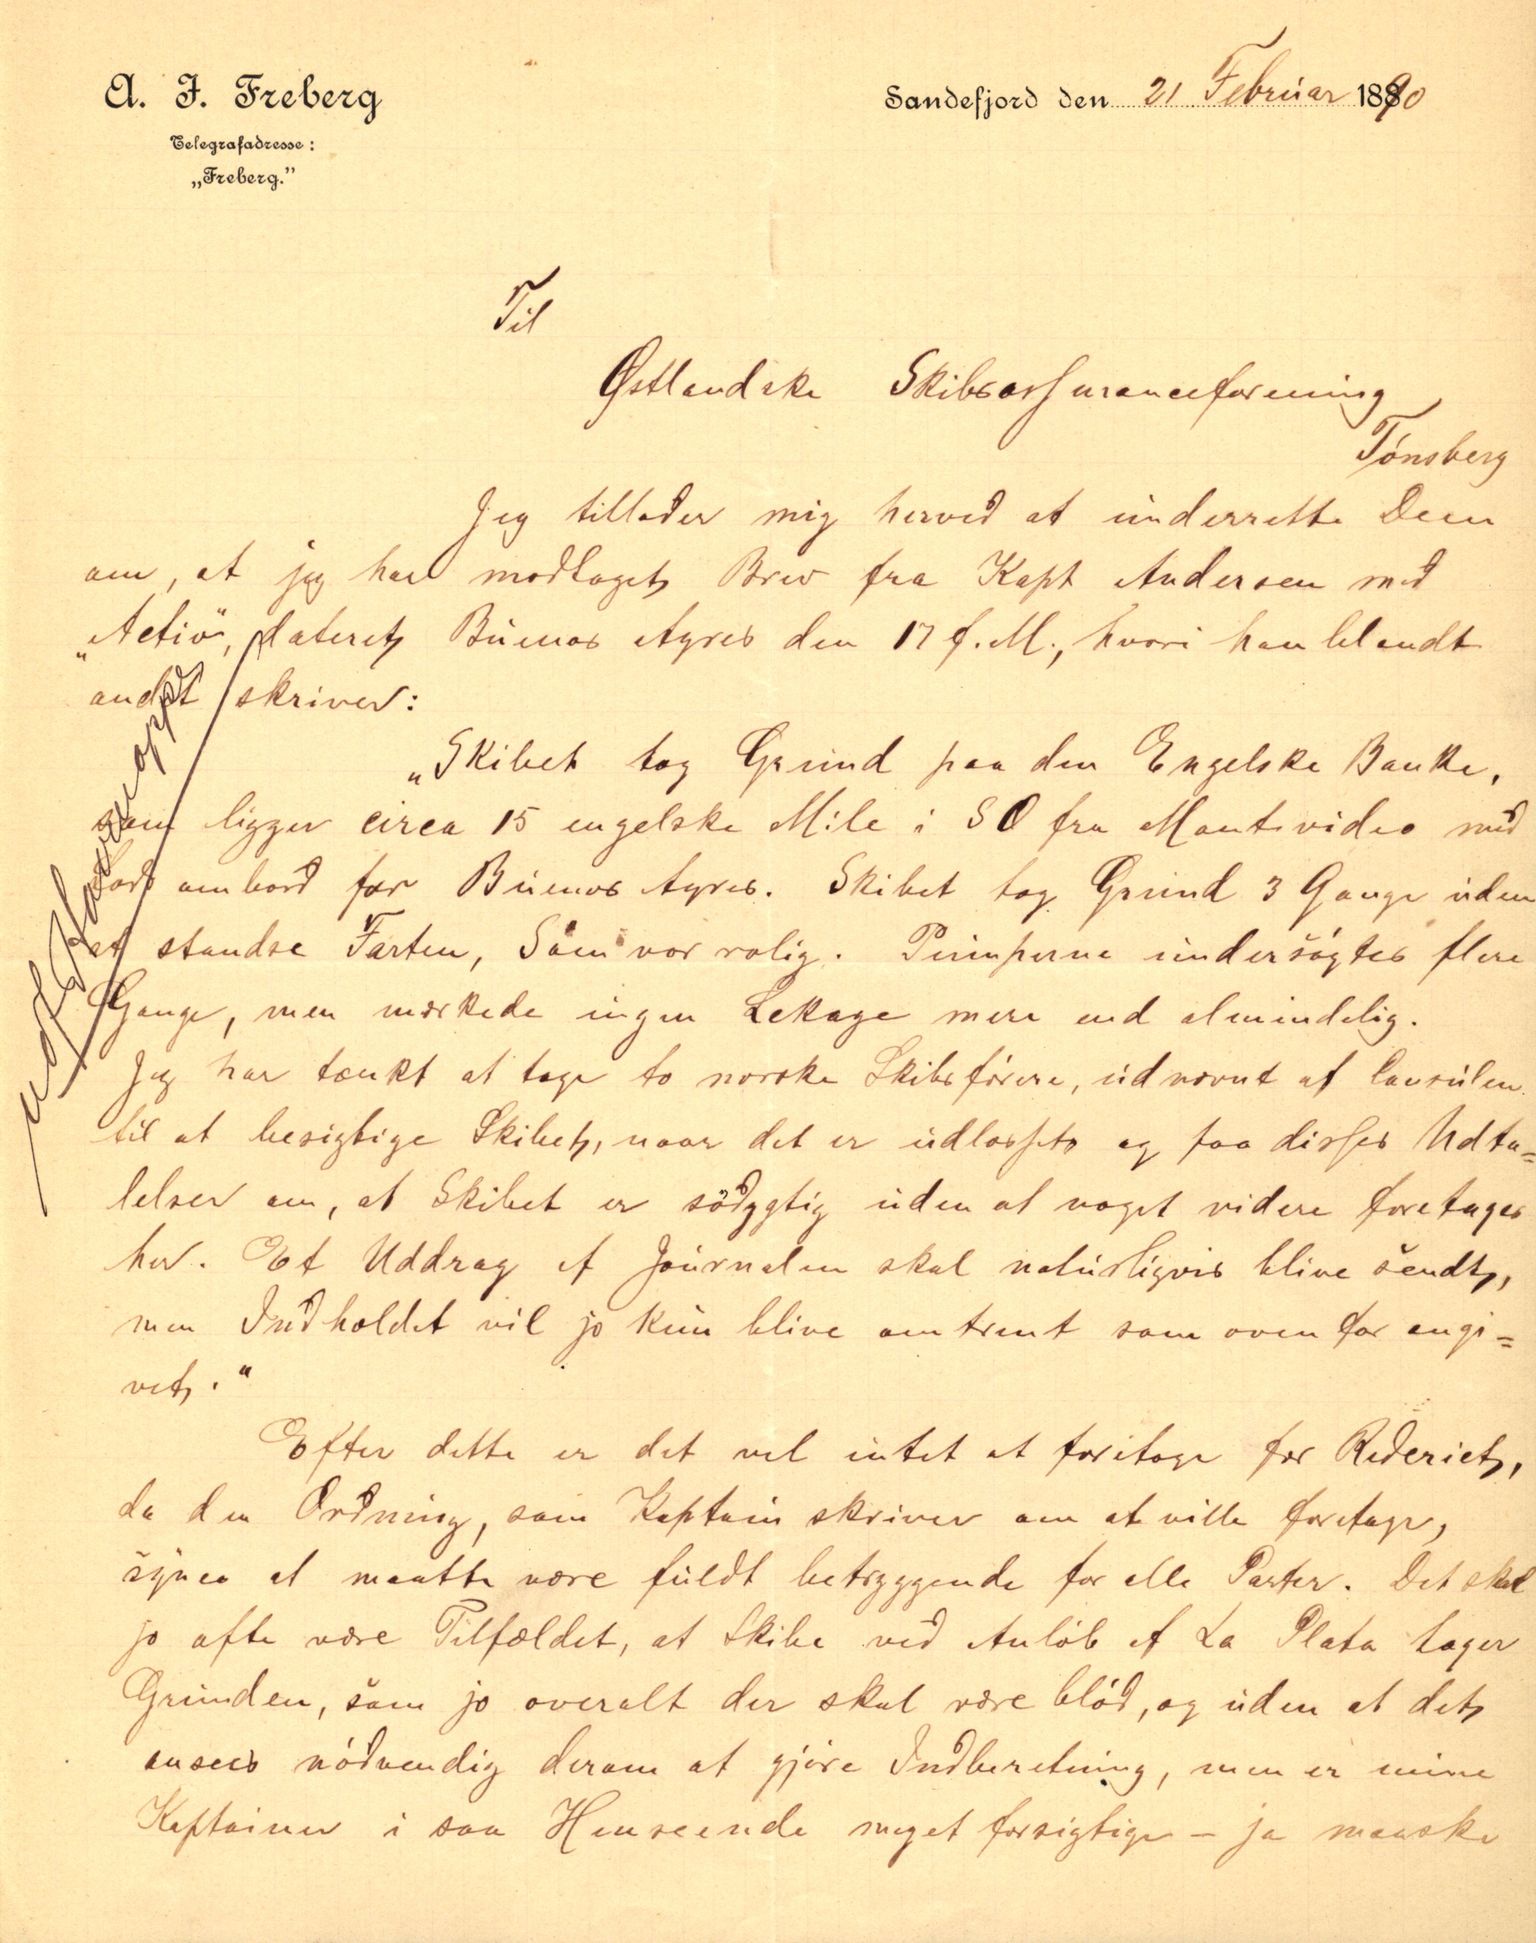 A. J. Freberg
Telegrafadresse:
„Freberg.”
Sandefjord den 21 Februar 1890
Til
Østlandske Skibsassuranceforening
Tónsberg
Jeg tillader mig herved at underrette Dem
om, at jeg har modtaget Brev fra Kapt Andersen med
„Activ“, dateret Buenos Ayres den 17 f. M., hvori han blandt
andet skriver:
„Skibet tog Grund paa den Engelske Banke,
som ligger circa 15 engelske Mile i SO fra Montevideo med
Lods ombord for Buenos Ayres. Skibet tog Grund 3 Gange uden
at standse Farten, Söen var rolig. Pumperne undersögtes flere
Gange, men mærkede ingen Lekage mere end almindelig.
Jeg har tænkt at tage to norske Skibsförere, udnævnt af Consulen
til at besigtige Skibet, naar det er udlosset og paa disses Udta=
lelser om, at Skibet er södygtig uden at noget videre foretages
her. Et Uddrag af Journalen skal naturligvis blive sendt,
men Indholdet vil jo kun blive omtrent som ovenfor angi=
vet.“
Efter dette er det vel intet at foretage for Rederiet,
da den Ordning, som Kaptain skriver om at ville foretage,
synes at maatte være fuldt betryggende for alle Parter. Det skal
jo ofte være Tilfældet, at Skibe ved Anlöb af La Plata tager
Grunden, som jo overalt der skal være blöd, og uden at det
ansees nödvendig derom at gjöre Indberetning, men er mine
Kaptainer i saa Henseende meget forsigtige – ja maaske